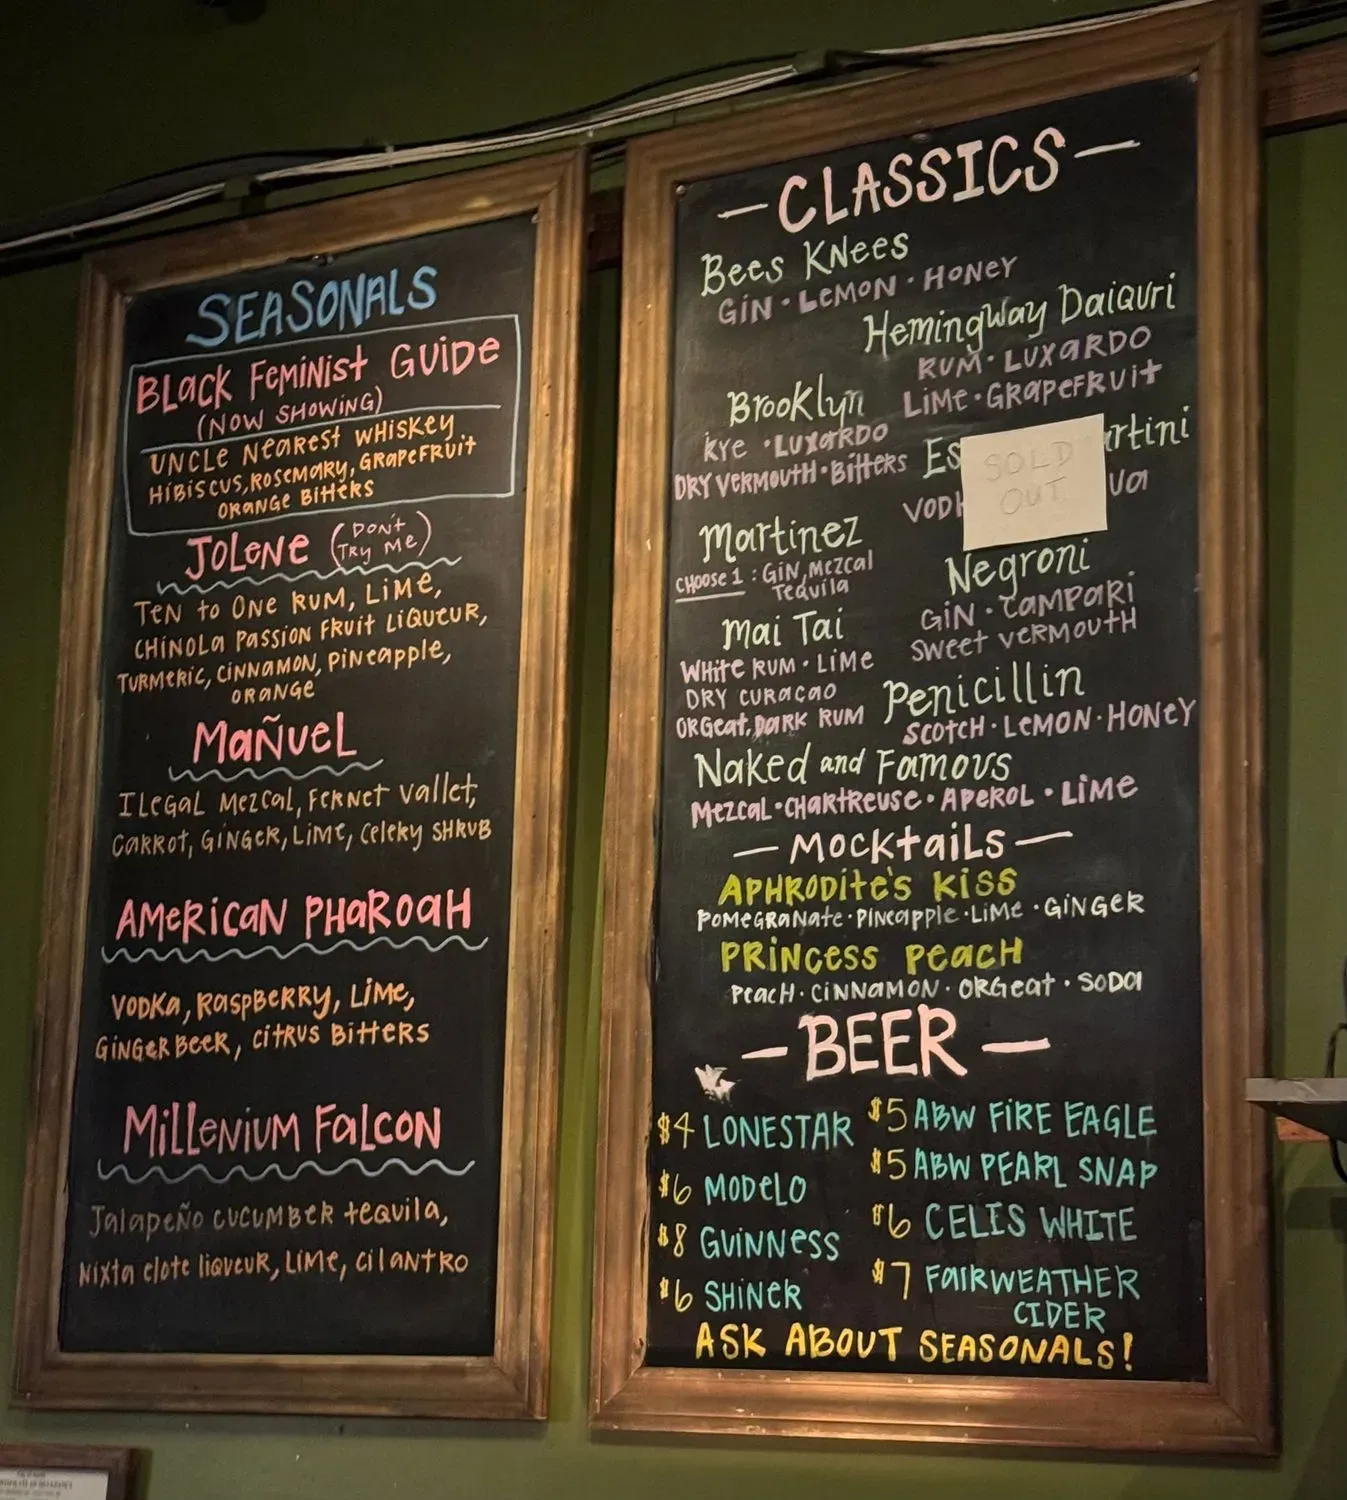 SEASONALS
BLACK FEMINIST GUIDE
(NOW SHOWING)
UNCLE NEAREST WHISKEY
HIBISCUS, ROSEMARY, GRAPEFRUIT
ORANGE BITTERS
JOLENE (DON'T
TRY ME)
TEN TO ONE RUM, LIME,
CHINOLA PASSION FRUIT LIQUEUR,
TURMERIC, CINNAMON, PINEAPPLE,
ORANGE
MAÑUEL
ILEGAL MEZCAL, FERNET VALLET,
CARROT, GINGER, LIME, CELERY SHRUB
AMERICAN PHAROAH
VODKA, RASPBERRY, LIME,
GINGER BEER, CITRUS BITTERS
MILLENIUM FALCON
Jalapeño CUCUMBER tequila,
Nixta elote liqueur, LIME, CILANTRO
—CLASSICS—
Bees Knees
GIN · LEMON · HONEY
Hemingway Daiquri
RUM · LUXARDO
LIME · GRAPEFRUIT
Brooklyn
RYE · LUXARDO
DRY VERMOUTH · BITTERS
Es
rtini
SOLD
OUT
VOD
ua
Martinez
CHOOSE 1 : GIN, MEZCAL
Tequila
Negroni
GIN · CAMPARI
SWEET VERMOUTH
Mai Tai
WHITE RUM · LIME
DRY CURAÇAO
ORGEAT, DARK RUM
Penicillin
SCOTCH · LEMON · HONEY
Naked and Famous
MEZCAL · CHARTREUSE · APEROL · LIME
—MOCKTAILS—
APHRODITE'S KISS
POMEGRANATE · PINEAPPLE · LIME · GINGER
PRINCESS PEACH
PEACH · CINNAMON · ORGEAT · SODA
—BEER—
$4 LONESTAR
$5 ABW FIRE EAGLE
$6 MODELO
$5 ABW PEARL SNAP
$8 GUINNESS
$6 CELIS WHITE
$6 SHINER
$7 FAIRWEATHER
CIDER
ASK ABOUT SEASONALS!